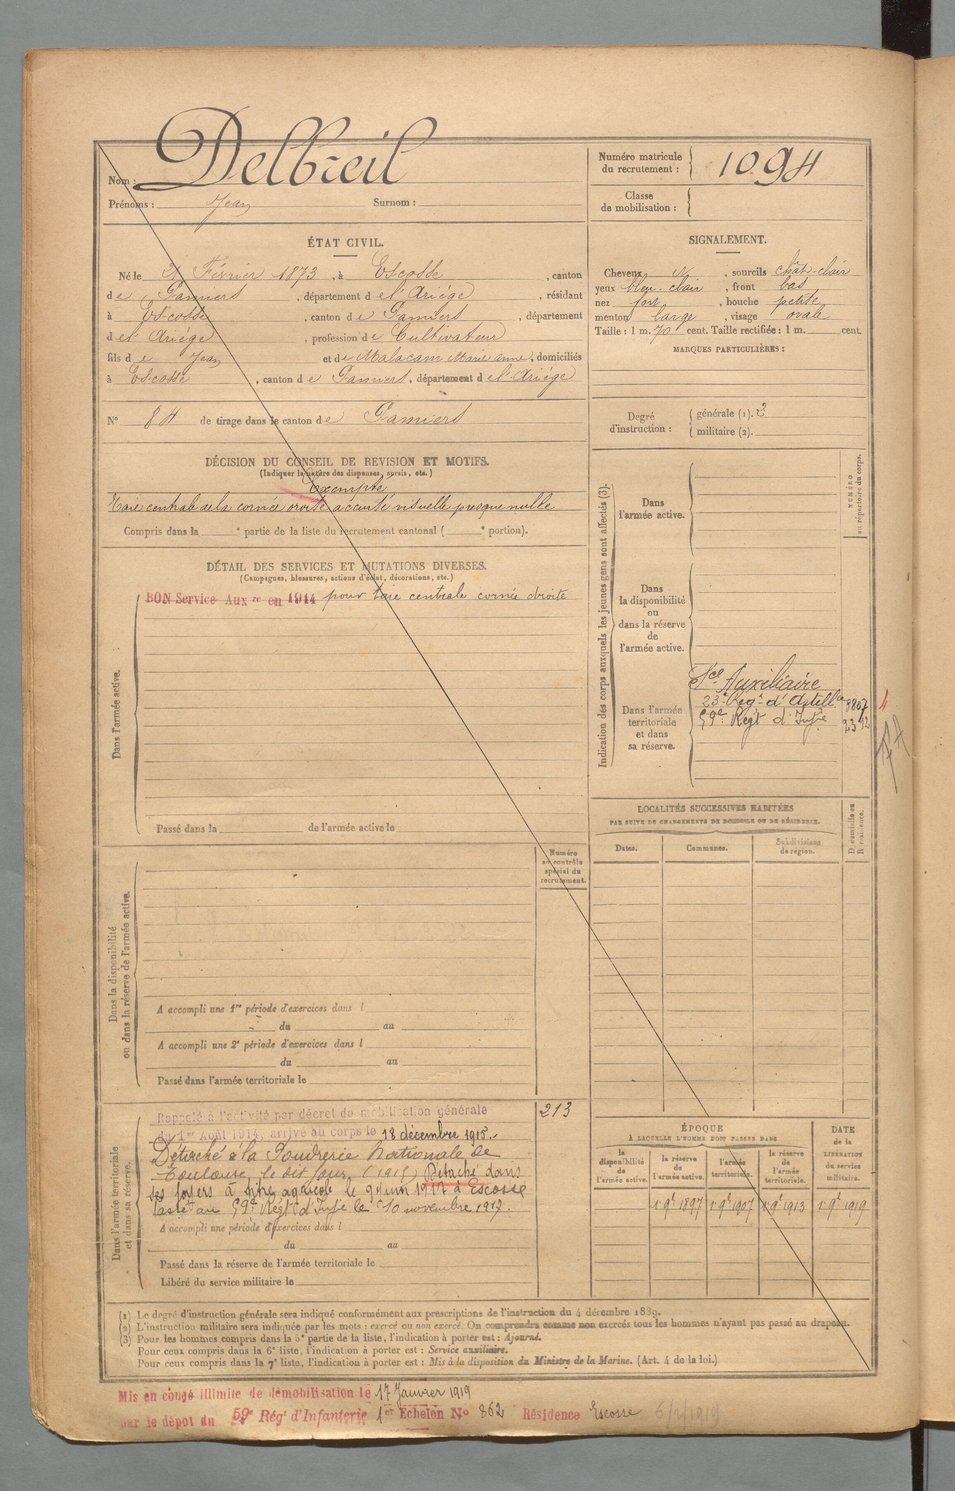 Nom : Delbreil
Prénoms : Jean Surnom :
Numéro matricule du recrutement : 1094
Classe de mobilisation :
ÉTAT CIVIL.
Né le Février 1873, à Escosse, canton
de Pamiers, département de l'Ariége, résidant
à Escosse, canton de Pamiers, département
de l'Ariége, profession de Cultivateur
fils de Jean et de Malacam Marie anne, domiciliés
à Escosse, canton de Pamiers, département de l'Ariége
N° 84 de tirage dans le canton de Pamiers
SIGNALEMENT.
Cheveux id, sourcils chât-clair
yeux bleu-clair, front bas
nez fort, bouche petite
menton large, visage ovale
Taille : 1 m. 70 cent. Taille rectifiée : 1 m. cent.
MARQUES PARTICULIÈRES :
Degré d'instruction : générale (1). 3
militaire (2).
DÉCISION DU CONSEIL DE REVISION ET MOTIFS.
(Indiquer la nature des dispenses, sursis, etc.)
Exempté
Taie centrale de la cornée droite acuité visuelle presque nulle
Compris dans la e partie de la liste du recrutement cantonal ( e portion).
DÉTAIL DES SERVICES ET MUTATIONS DIVERSES.
(Campagnes, blessures, actions d'éclat, décorations, etc.)
BON Service Auxre en 1914 pour taie centrale cornée droite
Dans l'armée active.
Passé dans la de l'armée active le
Indication des corps auxquels les jeunes gens sont affectés (3).
NUMÉRO au répertoire du corps.
Dans l'armée active.
Dans la disponibilité ou dans la réserve de l'armée active.
Dans l'armée territoriale et dans sa réserve.
Sce Auxiliaire
23e Regt d'Artillie
59e Regt d'Infie
LOCALITÉS SUCCESSIVES HABITÉES
PAR SUITE DE CHANGEMENTS DE DOMICILE OU DE RÉSIDENCE.
Dates. Communes. Subdivisions de région. D. domicile ou R. résidence.
Numéro au contrôle spécial du recrutement.
Dans la disponibilité ou dans la réserve de l'armée active.
A accompli une 1re période d'exercices dans l
du au
A accompli une 2e période d'exercices dans l
du au
Passé dans l'armée territoriale le
213
Dans l'armée territoriale et dans sa réserve.
Rappelé à l'activité par décret de mobilisation générale
du 1er Août 1914, arrivé au corps le 18 décembre 1915.-
Détaché à la Poudrerie Nationale de
Toulouse, le dit jour (1915) Détaché dans
ses foyers à titre agricole le 9 juin 1917 à Escosse
Passé au 59e Regt d'Infie le 10 novembre 1917.
A accompli une période d'exercices dans l
du au
Passé dans la réserve de l'armée territoriale le
Libéré du service militaire le
ÉPOQUE
À LAQUELLE L'HOMME DOIT PASSER DANS
la disponibilité de l'armée active. la réserve de l'armée active. l'armée territoriale. la réserve de l'armée territoriale. DATE de la LIBÉRATION du service militaire.
1 9e 1897 1 9e 1907 1 9e 1913 1 9e 1919
(1) Le degré d'instruction générale sera indiqué conformément aux prescriptions de l'instruction du 4 décembre 1889.
(2) L'instruction militaire sera indiquée par les mots : exercé ou non exercé. On comprendra comme non exercés tous les hommes n'ayant pas passé au drapeau.
(3) Pour les hommes compris dans la 5e partie de la liste, l'indication à porter est : Ajourné.
Pour ceux compris dans la 6e liste, l'indication à porter est : Service auxiliaire.
Pour ceux compris dans la 7e liste, l'indication à porter est : Mis à la disposition du Ministre de la Marine. (Art. 4 de la loi.)
Mis en congé illimité de démobilisation le 17 Janvier 1919
par le dépôt du 59e Régt d'Infanterie 1er Echelon No 862 Résidence Escosse